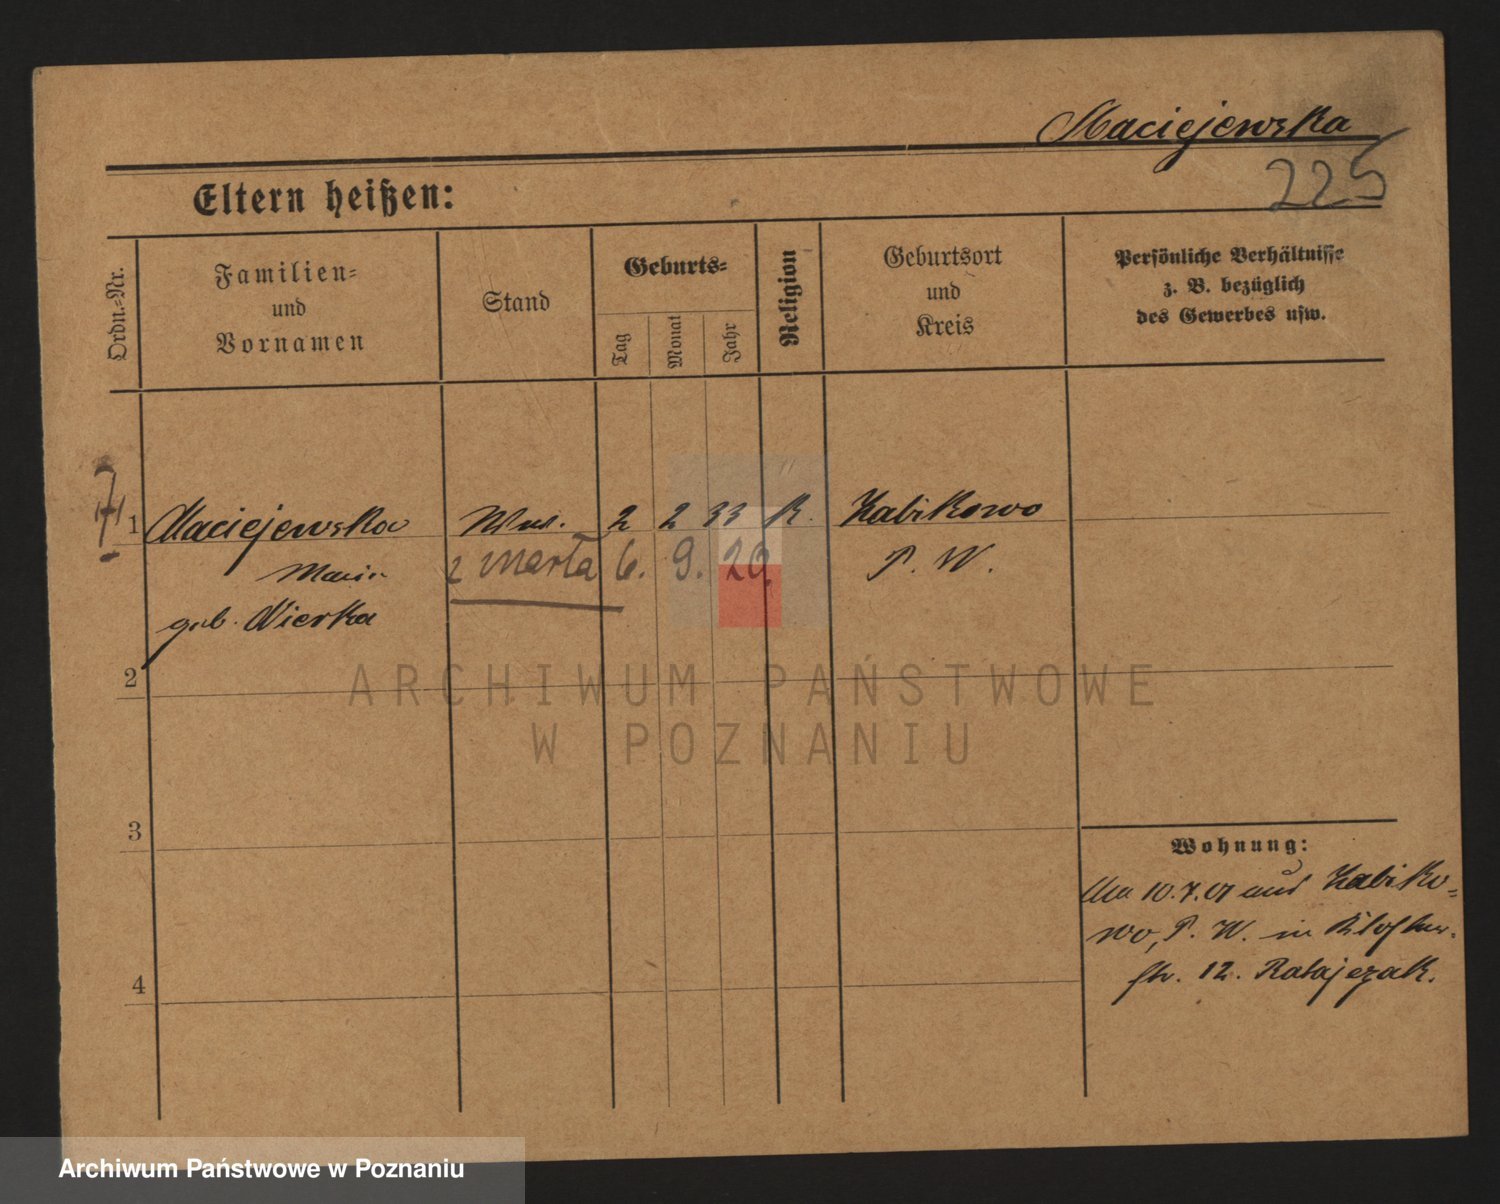 Maciejewska
225
Eltern heißen:
Ordn.-Nr.
Familien-
und
Vornamen
Stand
Geburts-
Tag
Monat
Jahr
Religion
Geburtsort
und
Kreis
Persönliche Verhältnisse
z. B. bezüglich
des Gewerbes usw.
1 Maciejewska Ww. 2 2 33 K. Zabikowo
Marie zmarła 6. 9. 20. P. W.
geb. Nierka
2
ARCHIWUM PAŃSTWOWE
W POZNANIU
3
Wohnung:
10.7.01 aus Zabiko-
wo, P. W. in
str. 12. Ratajczak.
4
Archiwum Państwowe w Poznaniu